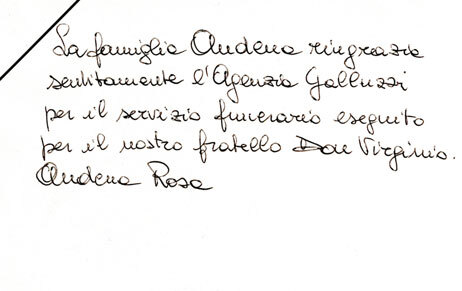 La famiglia Andena ringrazia
sentitamente l'Agenzia Galluzzi
per il servizio funerario eseguito
per il nostro fratello Don Virginio.
Andena Rosa